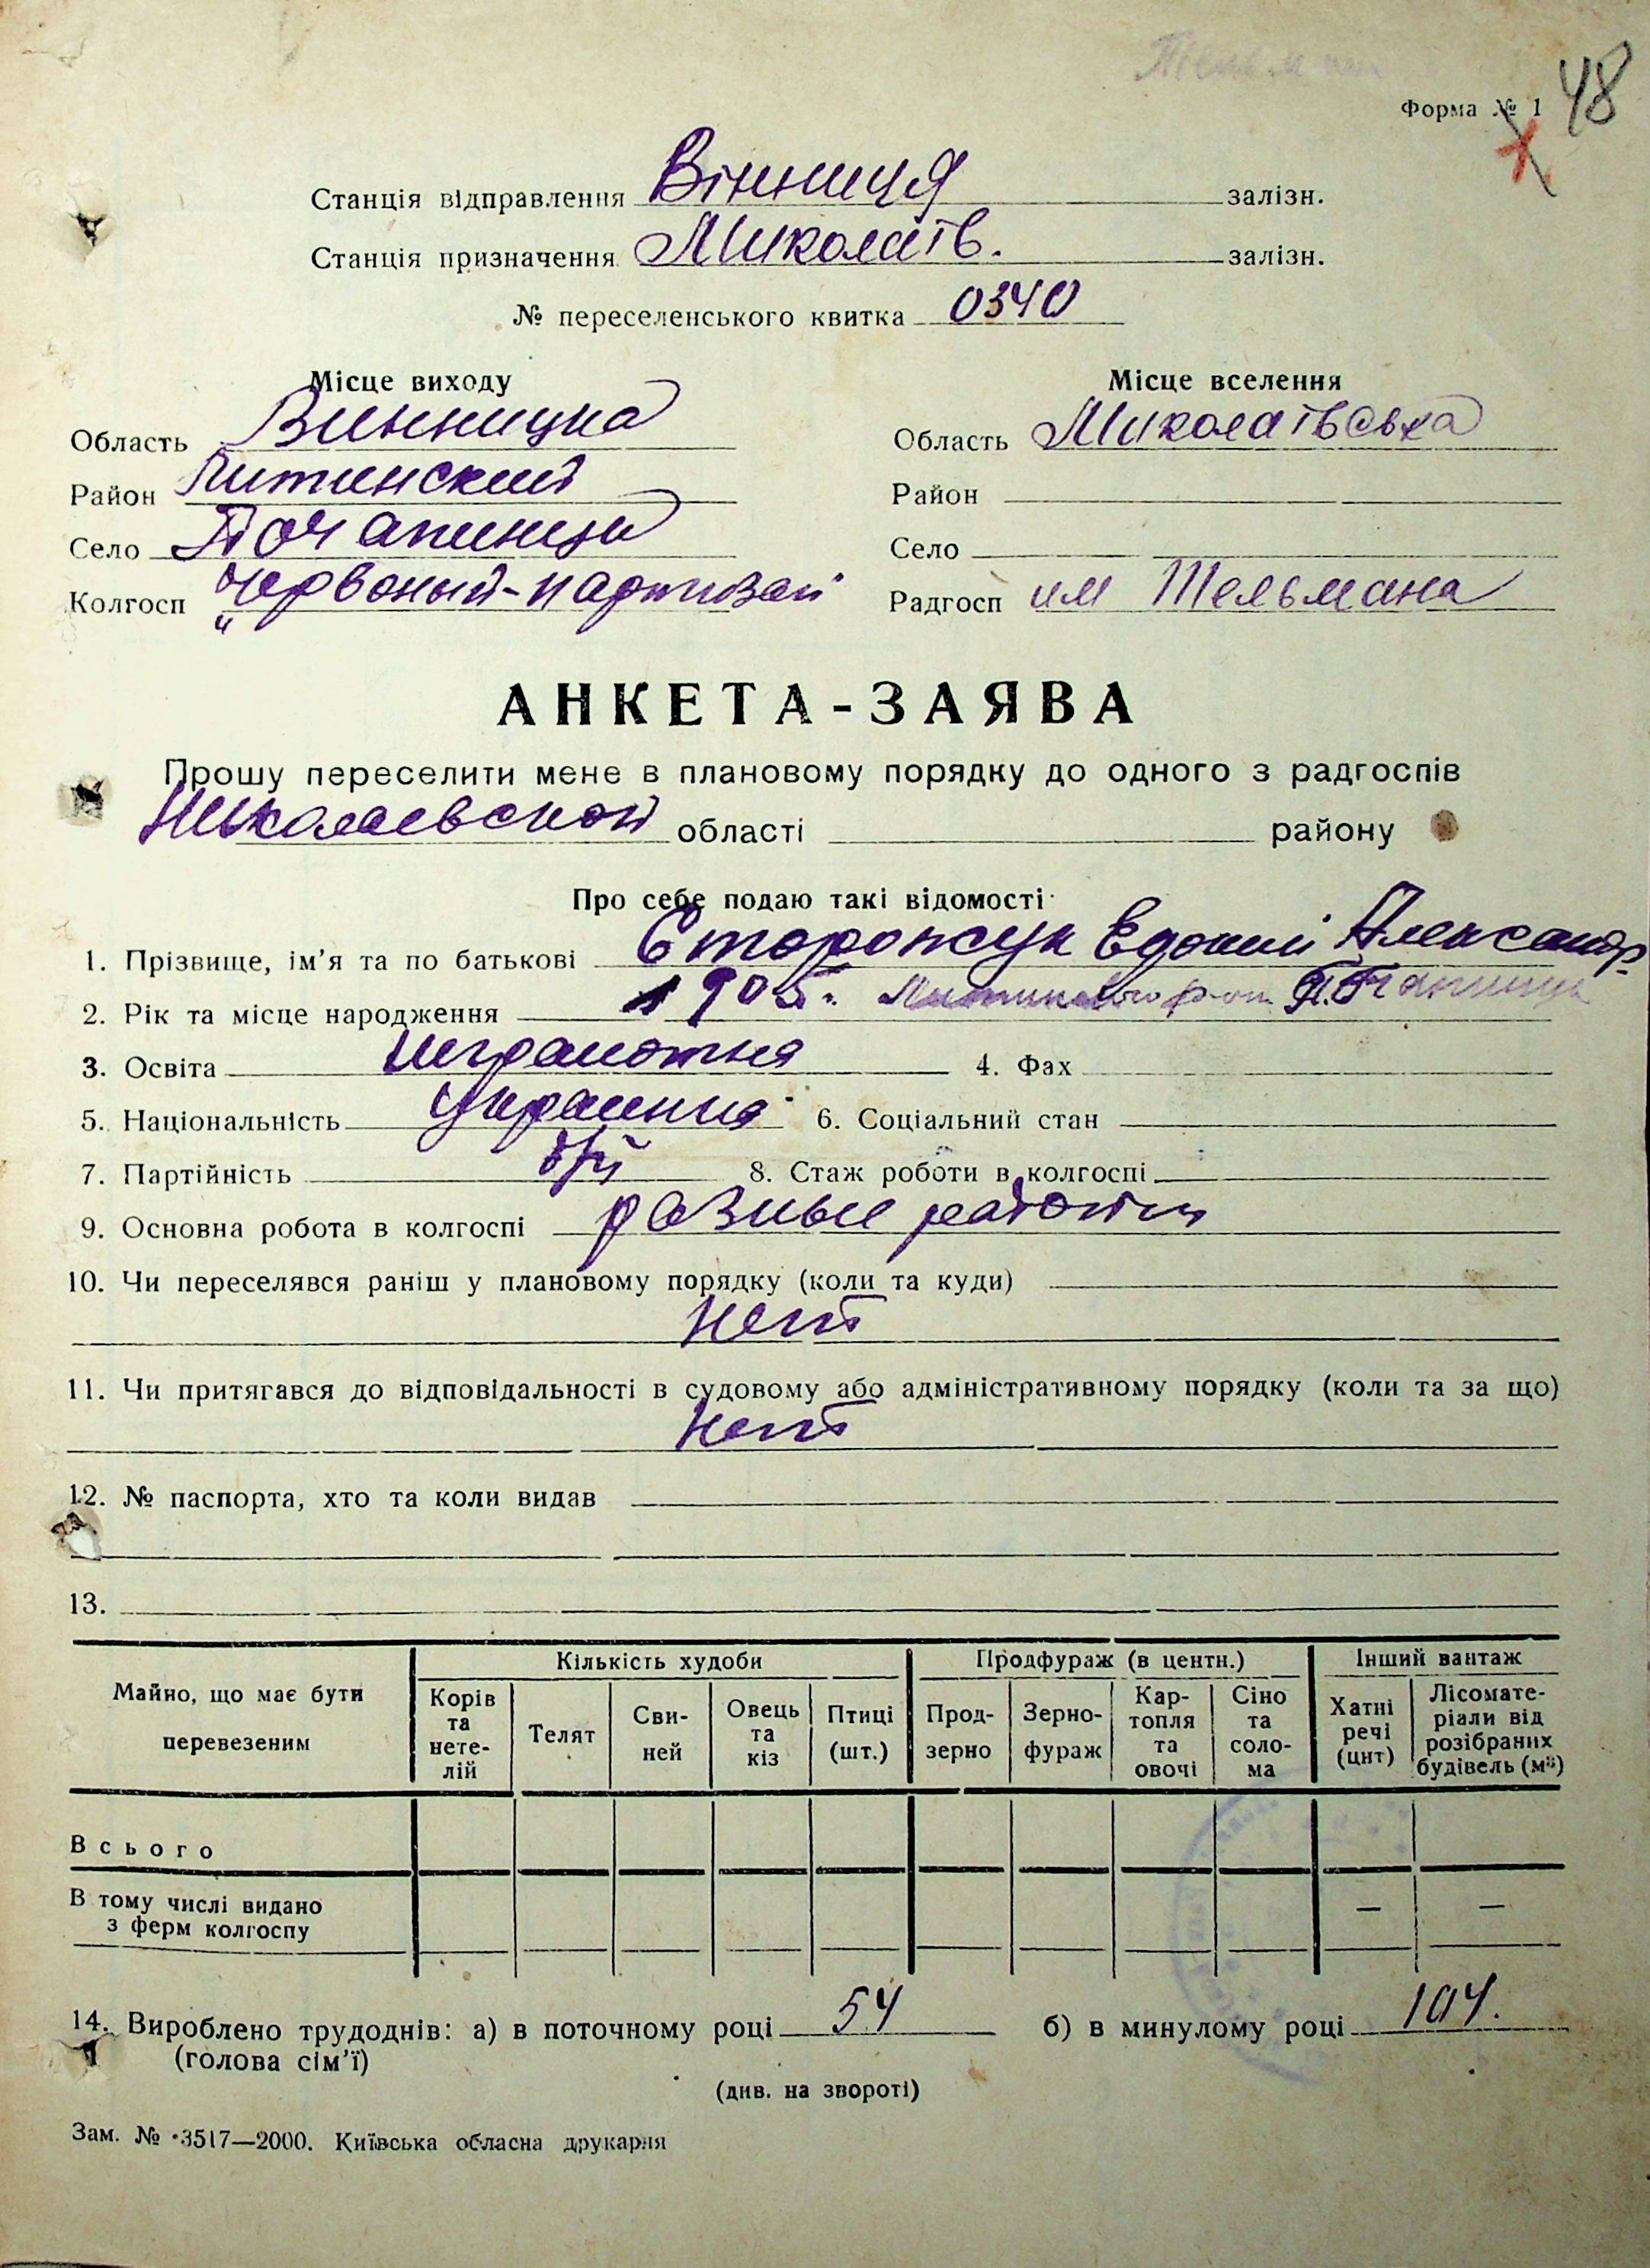 Форма № 1 48
Станція відправлення Вінниця залізн.
Станція призначення Миколаїв. залізн.
№ переселенського квитка 0340
Місце виходу Місце вселення
Область Винницка Область Миколаївська
Район Литинский Район
Село Почапинци Село
Колгосп "Червоный-партизан" Радгосп им Тельмана
АНКЕТА-ЗАЯВА
Прошу переселити мене в плановому порядку до одного з радгоспів
Николаевской області району
Про себе подаю такі відомості
1. Прізвище, ім'я та по батькові Сторожук Александр
2. Рік та місце народження 1905.
3. Освіта 4. Фах
5. Національність 6. Соціальний стан
7. Партійність б/п 8. Стаж роботи в колгоспі
9. Основна робота в колгоспі разные работы
10. Чи переселявся раніш у плановому порядку (коли та куди)
Нет
11. Чи притягався до відповідальності в судовому або адміністративному порядку (коли та за що)
Нет
12. № паспорта, хто та коли видав
13.
Майно, що має бути перевезеним Кількість худоби Продфураж (в центн.) Інший вантаж
Корів та нете-лій Телят Сви-ней Овець та кіз Птиці (шт.) Прод-зерно Зерно-фураж Кар-топля та овочі Сіно та соло-ма Хатні речі (цнт) Лісомате-ріали від розібраних будівель (м³)
Всього
В тому числі видано
з ферм колгоспу — —
14. Вироблено трудоднів: а) в поточному році 54 б) в минулому році 104.
(голова сім'ї)
(див. на звороті)
Зам. № 3517—2000. Київська обласна друкарня